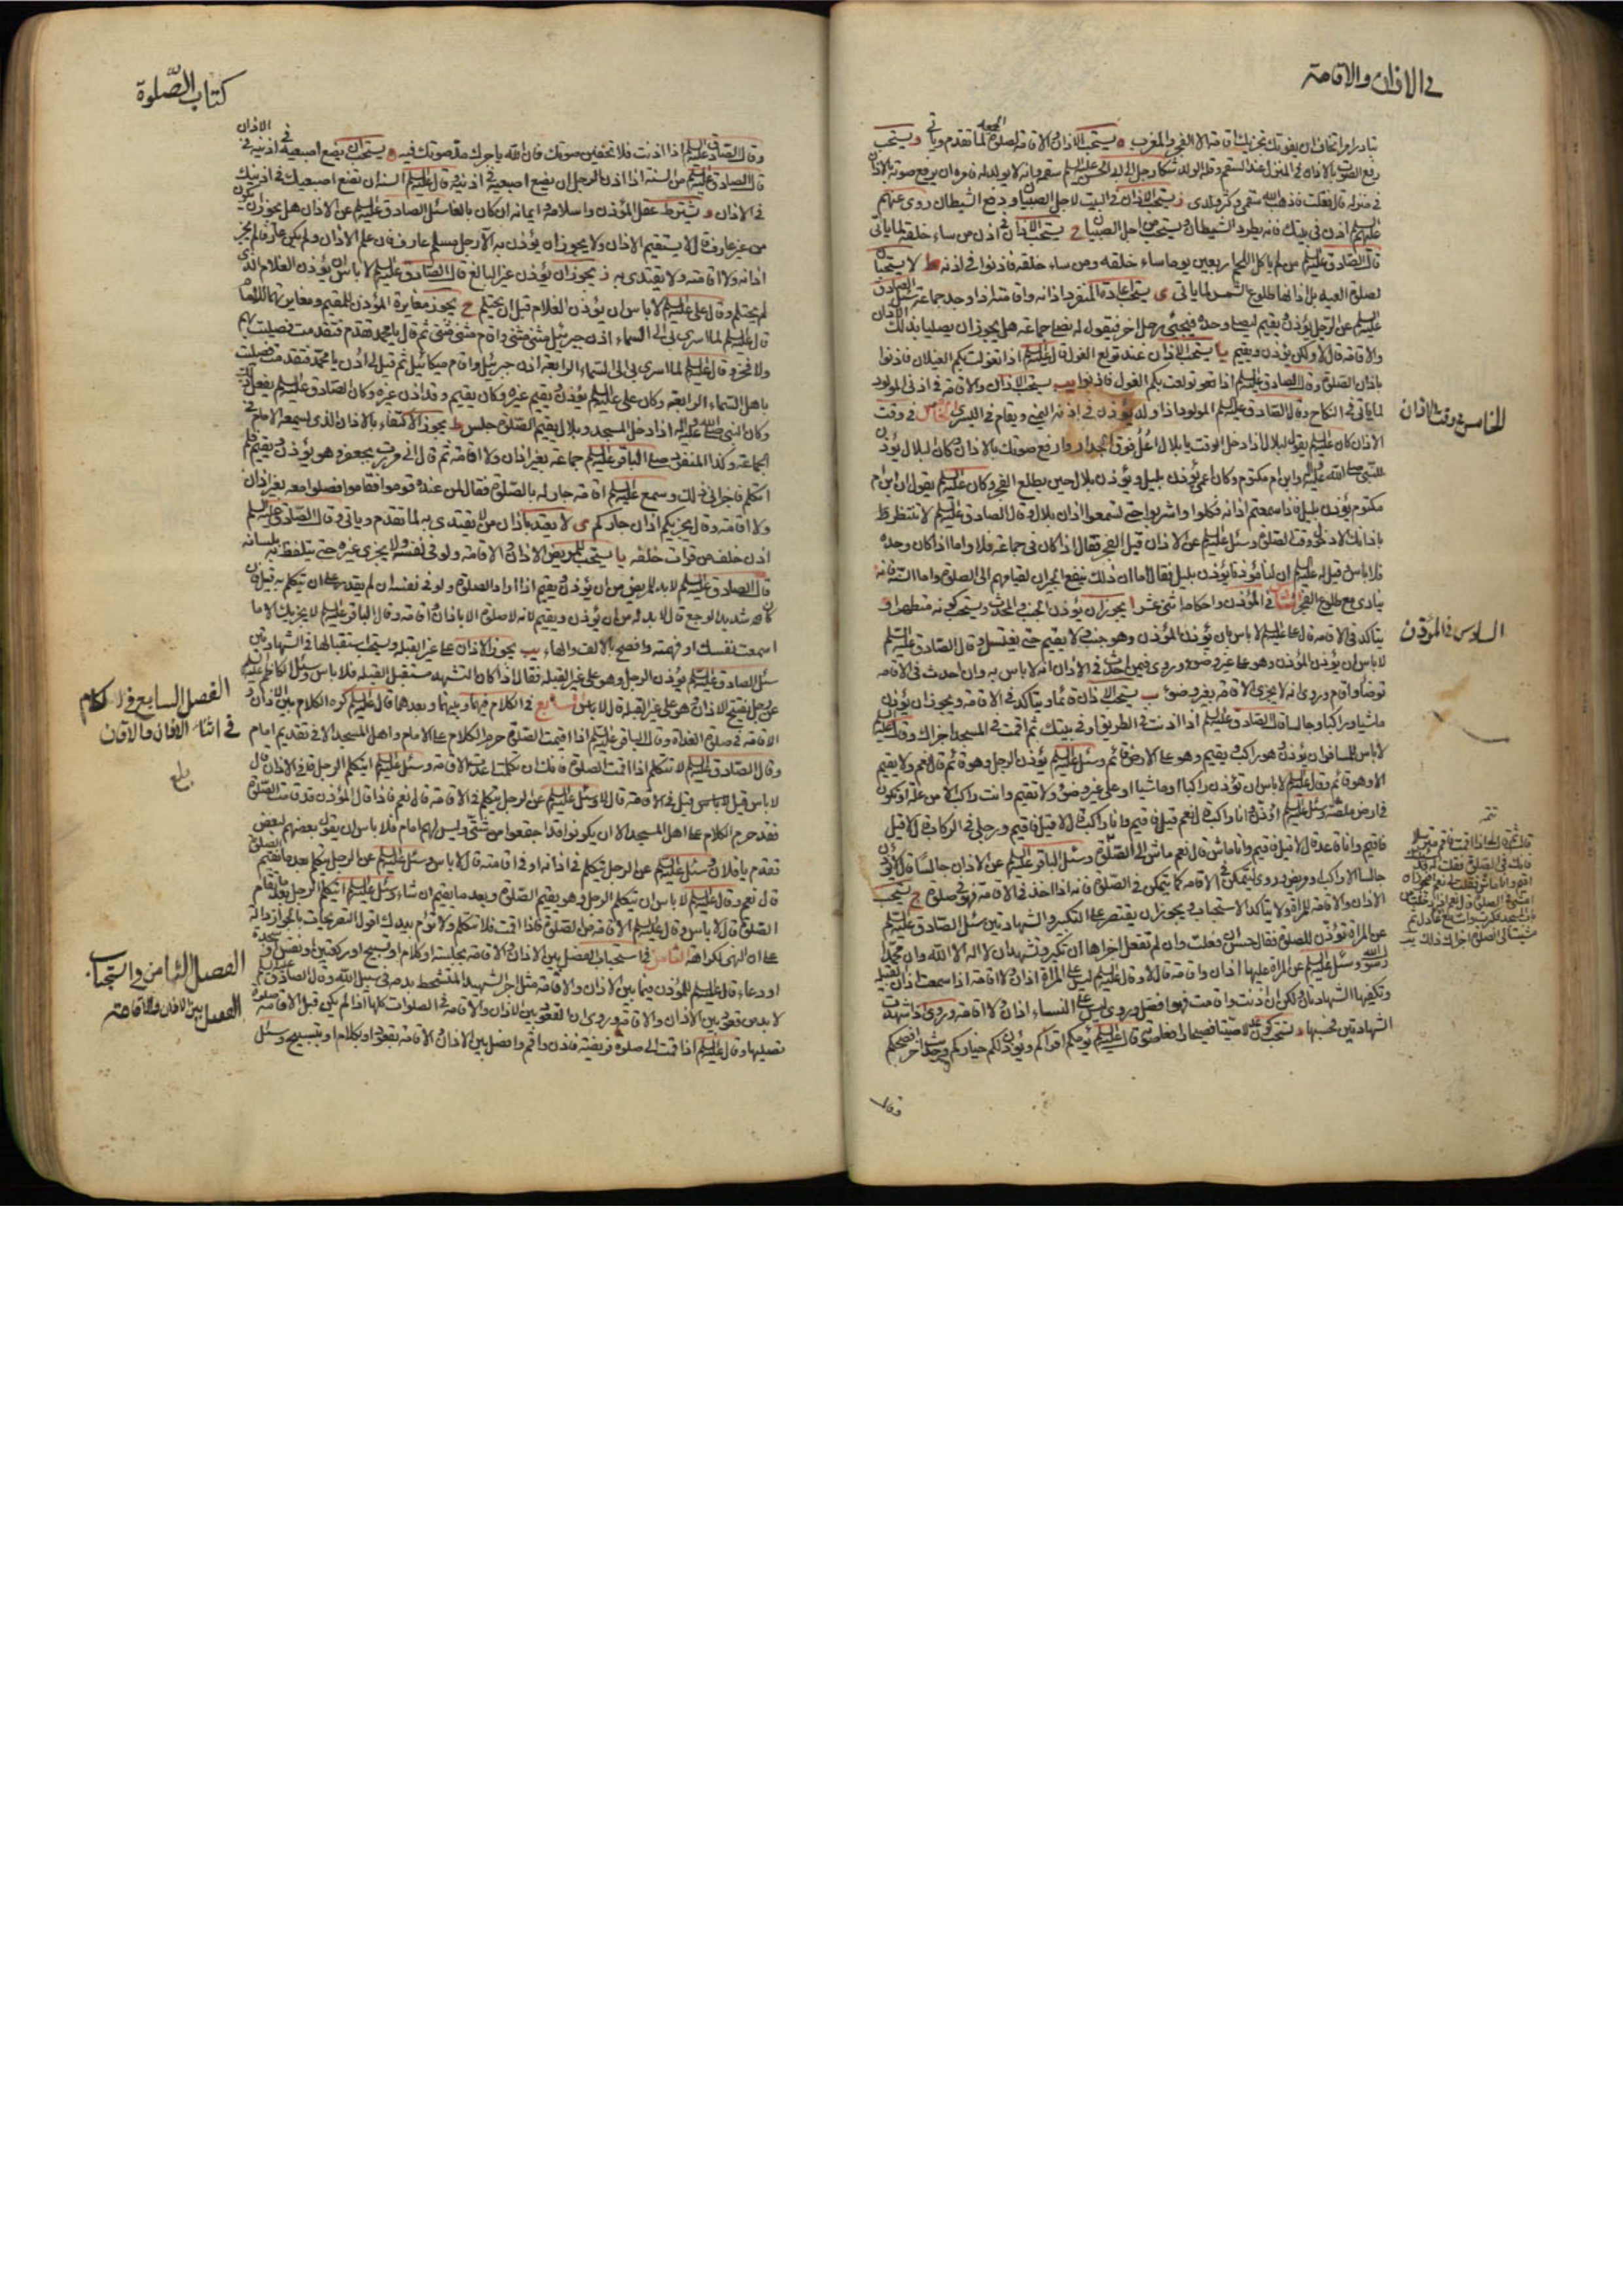 في الاذان والاقامة
تبادر امرا تخاف ان يفوتك تجزيك اقامة الا الفجر والمغرب ه يستحب الاذان والاقامة لصلوة الجمعة لما تقدم وياتي و يستحب
رفع الصوت بالاذان في المنزل عند السقم وقلة الولد شكا رجل الى ابي الحسن عليه السلم سقمه وانه لا يولد له فامره ان يرفع صوته بالاذان
في منزله قال ففعلت فاذهب الله سقمي وكثر ولدي ز يستحب الاذان في البيت لاجل الصبيان ودفع الشيطان روي عنهم
عليهم السلم اذن في بيتك فانه يطرد الشيطان ويستحب من اجل الصبيان ح يستحب الاذان في اذن من ساء خلقه لما ياتي
قال الصادق عليه السلم من لم ياكل اللحم اربعين يوما ساء خلقه ومن ساء خلقه فاذنوا في اذنه ط لا يستحبان
لصلوة العيد بل اذانها طلوع الشمس لما ياتي ى يستحب اعادة المنفرد اذانه واقامته اذا وجد جماعة سئل الصادق
عليه السلم عن الرجل يؤذن ويقيم ليصلي وحده فيجيء رجل اخر فيقول له نصلي جماعة هل يجوز ان يصليا بذلك الاذان
والاقامة قال لا ولكن يؤذن ويقيم يا يستحب الاذان عند تولع الغول قال عليه السلم اذا تغولت بكم الغيلان فاذنوا
باذان الصلوة وقال الصادق عليه السلم اذا تولعت بكم الغول فاذنوا يب يستحب الاذان والاقامة في اذني المولود
لما ياتي في النكاح وقال الصادق عليه السلم المولود اذا ولد يؤذن في اذنه اليمنى ويقام في اليسرى الخامس في وقت
الخامس في وقت الاذان
الاذان كان عليه السلم يقول لبلال اذا دخل الوقت يا بلال اعل فوق الجدار وارفع صوتك بالاذان وكان بلال يؤذن
للنبي صلى الله عليه واله وابن ام مكتوم وكان اعمى يؤذن بليل ويؤذن بلال حين يطلع الفجر وكان عليه السلم يقول ان ابن ام
مكتوم يؤذن بليل فاذا سمعتم اذانه فكلوا واشربوا حتى تسمعوا اذان بلال وقال الصادق عليه السلم لا تنتظر
باذانك الا دخول وقت الصلوة وسئل عليه السلم عن الاذان قبل الفجر فقال اذا كان في جماعة فلا واما اذا كان وحده
فلا باس قيل له عليه السلم ان لنا مؤذنا يؤذن بليل فقال اما ان ذلك ينفع الجيران لقيامهم الى الصلوة واما السنة فانه
ينادى مع طلوع الفجر السادس في المؤذن واحكامه اثنى عشر ا يجوز ان يؤذن الجنب والمحدث ويستحب كونه متطهرا و
السادس في المؤذن
يتاكد في الاقامة قال علي عليه السلم لا باس بان يؤذن المؤذن وهو جنب ولا يقيم حتى يغتسل وقال الصادق عليه السلم
لا باس ان يؤذن المؤذن وهو على غير وضوء وروي فيمن احدث في الاذان انه لا باس به وان احدث في الاقامة
توضأ واقام وروي انه لا يجزي الاقامة بغير وضوء ب يستحب الاذان قائما ويتاكد في الاقامة ويجوز ان يؤذن
ماشيا وراكبا وجالسا قال الصادق عليه السلم اذا اذنت في الطريق او في بيتك ثم اقمت في المسجد اجزاك وقال عليه السلم
لا باس للمسافر ان يؤذن وهو راكب ويقيم وهو على الارض قائم وسئل عليه السلم يؤذن الرجل وهو قائم قال نعم ولا يقيم
الا وهو قائم وقال عليه السلم لا باس ان تؤذن راكبا او ماشيا او على غير وضوء ولا تقيم وانت راكب الا من علة او تكون
في ارض ملصة وسئل عليه السلم اؤذن وانا راكب قال نعم قيل فاقيم وانا راكب قال لا قيل فاقيم ورجلي في الركاب قال لا قيل
فاقيم وانا قاعد قال لا قيل فاقيم وانا ماش قال نعم ماش الى الصلوة وسئل الباقر عليه السلم عن الاذان جالسا قال لا يؤذن
جالسا الا راكب او مريض وروي ليتمكن في الاقامة كما يتمكن في الصلوة فانه اذا اخذ في الاقامة فهو في صلوة ج يستحب
الاذان والاقامة للمراة ولا يتاكد الاستحباب ويجوز ان يقتصر على التكبير والشهادتين سئل الصادق عليه السلم
عن المراة تؤذن للصلوة فقال حسن ان فعلت وان لم تفعل اجزاها ان تكبر وتشهد ان لا اله الا الله وان محمدا
رسول الله وسئل عليه السلم عن المراة عليها اذان واقامة قال لا وقال عليه السلم ليس على المراة اذان ولا اقامة اذا سمعت اذان القبيلة
وتكفيها الشهادتان ولكن ان اذنت واقامت فهو افضل وروي ليس على النساء اذان ولا اقامة وروي اذا شهدت
الشهادتين فحسبها د يستحب كون المؤذن صيتا فصيحا قال عليه السلم يؤمكم اقرأكم ويؤذن لكم خياركم وفي حديث اخر افصحكم
وقال
كتاب الصلوة
وقال الصادق عليه السلم اذا اذنت فلا تخفين صوتك فان الله ياجرك مد صوتك فيه ه يستحب ان يضع اصبعيه في اذنيه في الاذان
قال الصادق عليه السلم من السنة اذا اذن الرجل ان يضع اصبعيه في اذنيه وقال عليه السلم السنة ان تضع اصبعيك في اذنيك
في الاذان و يشترط عقل المؤذن واسلامه وايمانه ان كان بالغا سئل الصادق عليه السلم عن الاذان هل يجوز ان يكون
من غير عارف قال لا يستقيم الاذان ولا يجوز ان يؤذن به الا رجل مسلم عارف فان علم الاذان ولم يكن عارفا لم يجز
اذانه ولا اقامته ولا يقتدى به ز يجوز ان يؤذن غير البالغ قال الصادق عليه السلم لا باس ان يؤذن الغلام الذي
لم يحتلم وقال علي عليه السلم لا باس ان يؤذن الغلام قبل ان يحتلم ح يجوز مغايرة المؤذن للمقيم ومغايرتهما للامام
قال عليه السلم لما اسري بي الى السماء اذن جبرئيل مثنى مثنى واقام مثنى مثنى ثم قال يا محمد تقدم فتقدمت فصليت بهم
ولا فخر وقال عليه السلم لما اسري بي الى السماء الرابعة اذن جبرئيل واقام ميكائيل ثم قيل لي ادن يا محمد فتقدمت فصليت
باهل السماء الرابعة وكان علي عليه السلم يؤذن ويقيم غيره وكان يقيم وقد اذن غيره وكان الصادق عليه السلم يفعل ذلك
وكان النبي صلى الله عليه واله اذا دخل المسجد وبلال يقيم الصلوة جلس ط يجوز الاكتفاء بالاذان الذي يسمعه الامام في
الجماعة وكذا المنفرد صلى الباقر عليه السلم جماعة بغير اذان ولا اقامة ثم قال اني مررت بجعفر وهو يؤذن ويقيم فلم
اتكلم فاجزاني ذلك وسمع عليه السلم اقامة جار له بالصلوة فقال لمن عنده قوموا فقاموا فصلوا معه بغير اذان
ولا اقامة وقال يجزيكم اذان جاركم ى لا يعتد باذان من لا يقتدى به لما تقدم وياتي وقال الصادق عليه السلم
اذن خلف من قرات خلفه يا يستحب للمريض الاذان والاقامة ولو في نفسه ولا يجزي غيره حتى يتلفظ به بلسانه
قال الصادق عليه السلم لا بد للمريض من ان يؤذن ويقيم اذا اراد الصلوة ولو في نفسه ان لم يقدر على ان يتكلم به قيل فان
كان شديد الوجع قال لا بد له من ان يؤذن ويقيم لانه لا صلوة الا باذان واقامة وقال الباقر عليه السلم لا يجزيك الا ما
اسمعت نفسك او فهمته وافصح بالالف والهاء يب يجوز الاذان على غير القبلة ويستحب استقبالها في الشهادتين
سئل الصادق عليه السلم يؤذن الرجل وهو على غير القبلة فقال اذا كان التشهد مستقبل القبلة فلا باس وسئل الكاظم عليه السلم
عن رجل يفتتح الاذان وهو على غير القبلة قال لا باس السابع في الكلام فيهما وبينهما وبعدهما قال عليه السلم كره الكلام بين الاذان و
الفصل السابع في الكلام
في اثناء الاذان والاقامة
الاقامة في صلوة الغداة وقال الباقر عليه السلم اذا اقيمت الصلوة حرم الكلام على الامام واهل المسجد الا في تقديم امام
وقال الصادق عليه السلم لا تتكلم اذا اقمت الصلوة فانك ان تكلمت اعدت الاقامة وسئل عليه السلم ايتكلم الرجل في الاذان قال
لا باس قيل في الاقامة قال لا وسئل عليه السلم عن الرجل يتكلم في الاقامة قال نعم فاذا قال المؤذن قد قامت الصلوة
فقد حرم الكلام على اهل المسجد الا ان يكونوا قد اجتمعوا من شتى وليس لهم امام فلا باس ان يقول بعضهم لبعض
تقدم يا فلان وسئل عليه السلم عن الرجل يتكلم في اذانه او في اقامته قال لا باس وسئل عليه السلم عن الرجل يتكلم بعد ما يقيم الصلوة
قال نعم وقال عليه السلم لا باس ان يتكلم الرجل وهو يقيم الصلوة وبعد ما يقيم ان شاء وسئل عليه السلم ايتكلم الرجل بعد ما تقام
الصلوة قال لا باس وقال عليه السلم الاقامة من الصلوة فاذا اقمت فلا تتكلم ولا تؤم بيدك اقول التصريحات بالجواز دالة
على ان النهي للكراهة الثامن في استحباب الفصل بين الاذان والاقامة بجلسة او كلام او تسبيح او ركعتين او نفس او سجدة
الفصل الثامن في استحباب
الفصل بين الاذان والاقامة
او دعاء قال عليه السلم للمؤذن فيما بين الاذان والاقامة مثل اجر الشهيد المتشحط بدمه في سبيل الله وقال الصادق عليه السلم
لا بد من قعود بين الاذان والاقامة وروي ان القعود بين الاذان والاقامة في الصلوات كلها اذا لم يكن قبل الاقامة صلوة
تصليها وقال عليه السلم اذا قمت الى صلوة فريضة فاذن واقم وافصل بين الاذان والاقامة بقعود او بكلام او بتسبيح وسئل